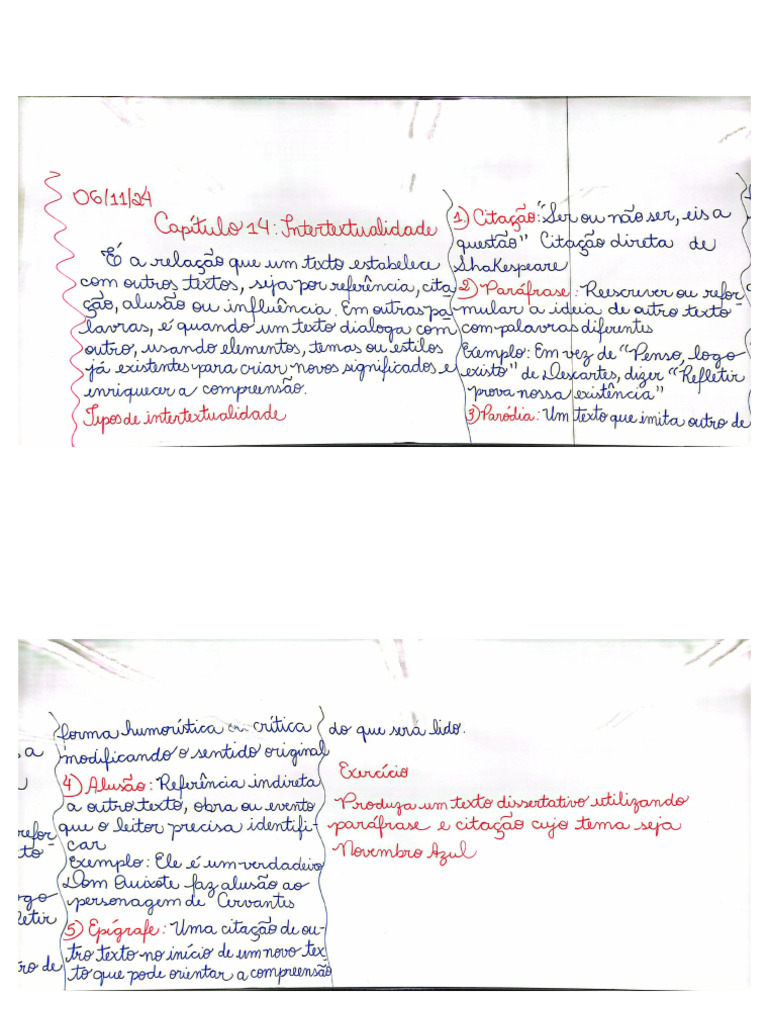 06/11/24
Capítulo 14: Intertextualidade
É a relação que um texto estabelece
com outros textos, seja por referência, cita-
ção, alusão ou influência. Em outras pa-
lavras, é quando um texto dialoga com
outro, usando elementos, temas ou estilos
já existentes para criar novos significados e
enriquecer a compreensão.
Tipos de intertextualidade
1) Citação: "Ser ou não ser, eis a
questão" Citação direta de
Shakespeare
2) Paráfrase: Reescrever ou refor-
mular a ideia de outro texto
com palavras diferentes
Exemplo: Em vez de "Penso, logo
existo" de Descartes, dizer "Refletir
prova nossa existência"
3) Paródia: Um texto que imita outro de
a
refor-
to
ogo
letir
ro de
forma humorística ou crítica
modificando o sentido original
4) Alusão: Referência indireta
a outro texto, obra ou evento
que o leitor precisa identifi-
car
Exemplo: Ele é um verdadeiro
Dom Quixote faz alusão ao
personagem de Cervantes
5) Epígrafe: Uma citação de ou-
tro texto no início de um novo tex-
to que pode orientar a compreensão
do que será lido.
Exercício
Produza um texto dissertativo utilizando
paráfrase e citação cujo tema seja
Novembro Azul